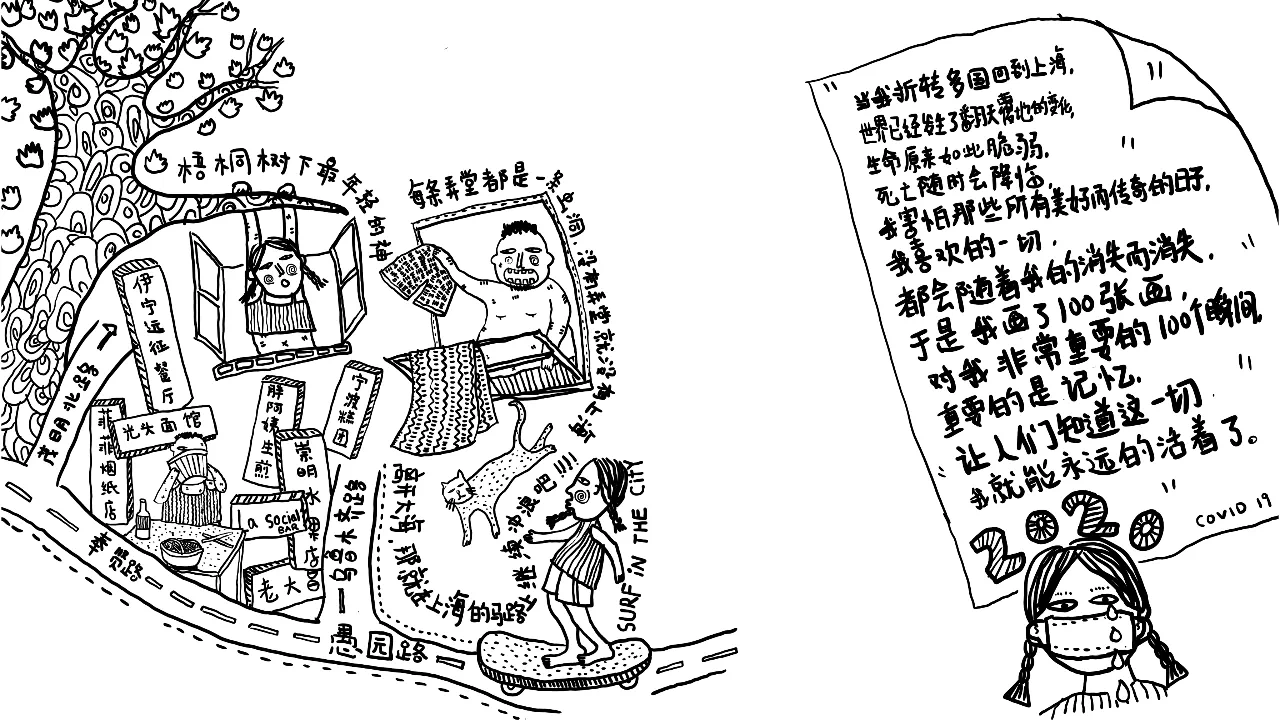 梧桐树下最年轻的神
每条弄堂都是一条虫洞，没有弄堂就没有上海
伊宁远征餐厅
茂名北路
菲菲烟纸店
光头面馆
胖阿姨生煎
宁波糕团
崇明水果店
a SOCiaL
BAR
老大
奉贤路
乌鲁木齐路
愚园路
离开大海，那就在上海的马路上继续冲浪吧!!!!
SURF iN THE CiTY
"
"
当我折转多国回到上海，
世界已经发生了翻天覆地的变化，
生命原来如此脆弱，
死亡随时会降临，
我害怕那些所有美好而传奇的日子，
我喜欢的一切，
都会随着我的消失而消失，
于是我画了100张画，
对我非常重要的100个瞬间，
重要的是记忆，
让人们知道这一切
我就能永远的活着了。
2020
COVID 19